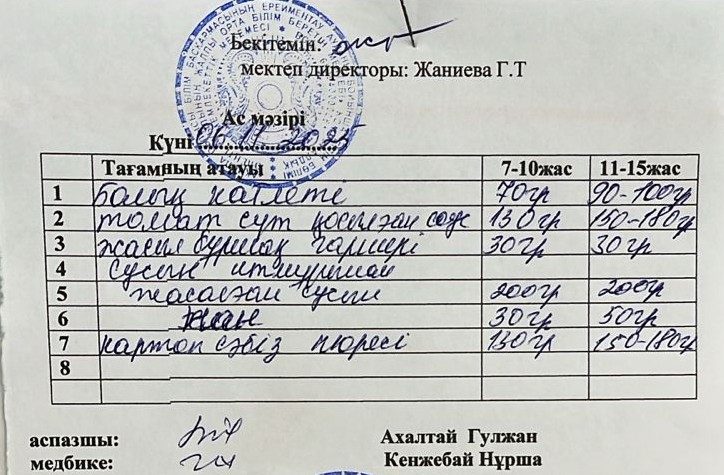 Бекітемін:
мектеп директоры: Жаниева Г.Т
Ас мәзірі
Күні 06.11.2025
Тағамның атауы 7-10жас 11-15жас
1 балық котлеті 70гр 90-100гр
2 томат сүт қосылған соус 130гр 150-180гр
3 жасыл бұршақ гарнирі 30гр 30гр
4 сусын итмұрыннан
5 жасалған сусын 200гр 200гр
6 нан 30гр 50гр
7 картоп сәбіз пюресі 130гр 150-180гр
8
аспазшы: Ахалтай Гулжан
медбике: Кенжебай Нұрша